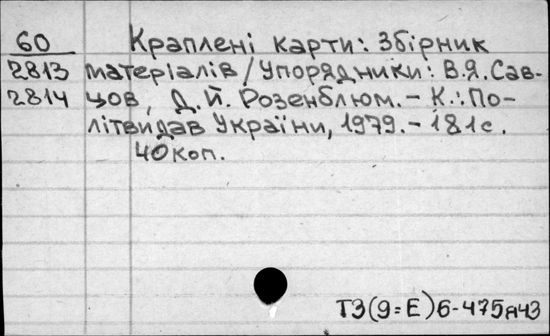 60 Краплені карти: Збірник
2813 матеріалів / Упорядники: В.Я. Сав-
2814 цов, Д.Й. Розенблюм. – К.: По-
літвидав України, 1979. – 181с.
40 коп.
ТЗ(9=Е)6-475я43